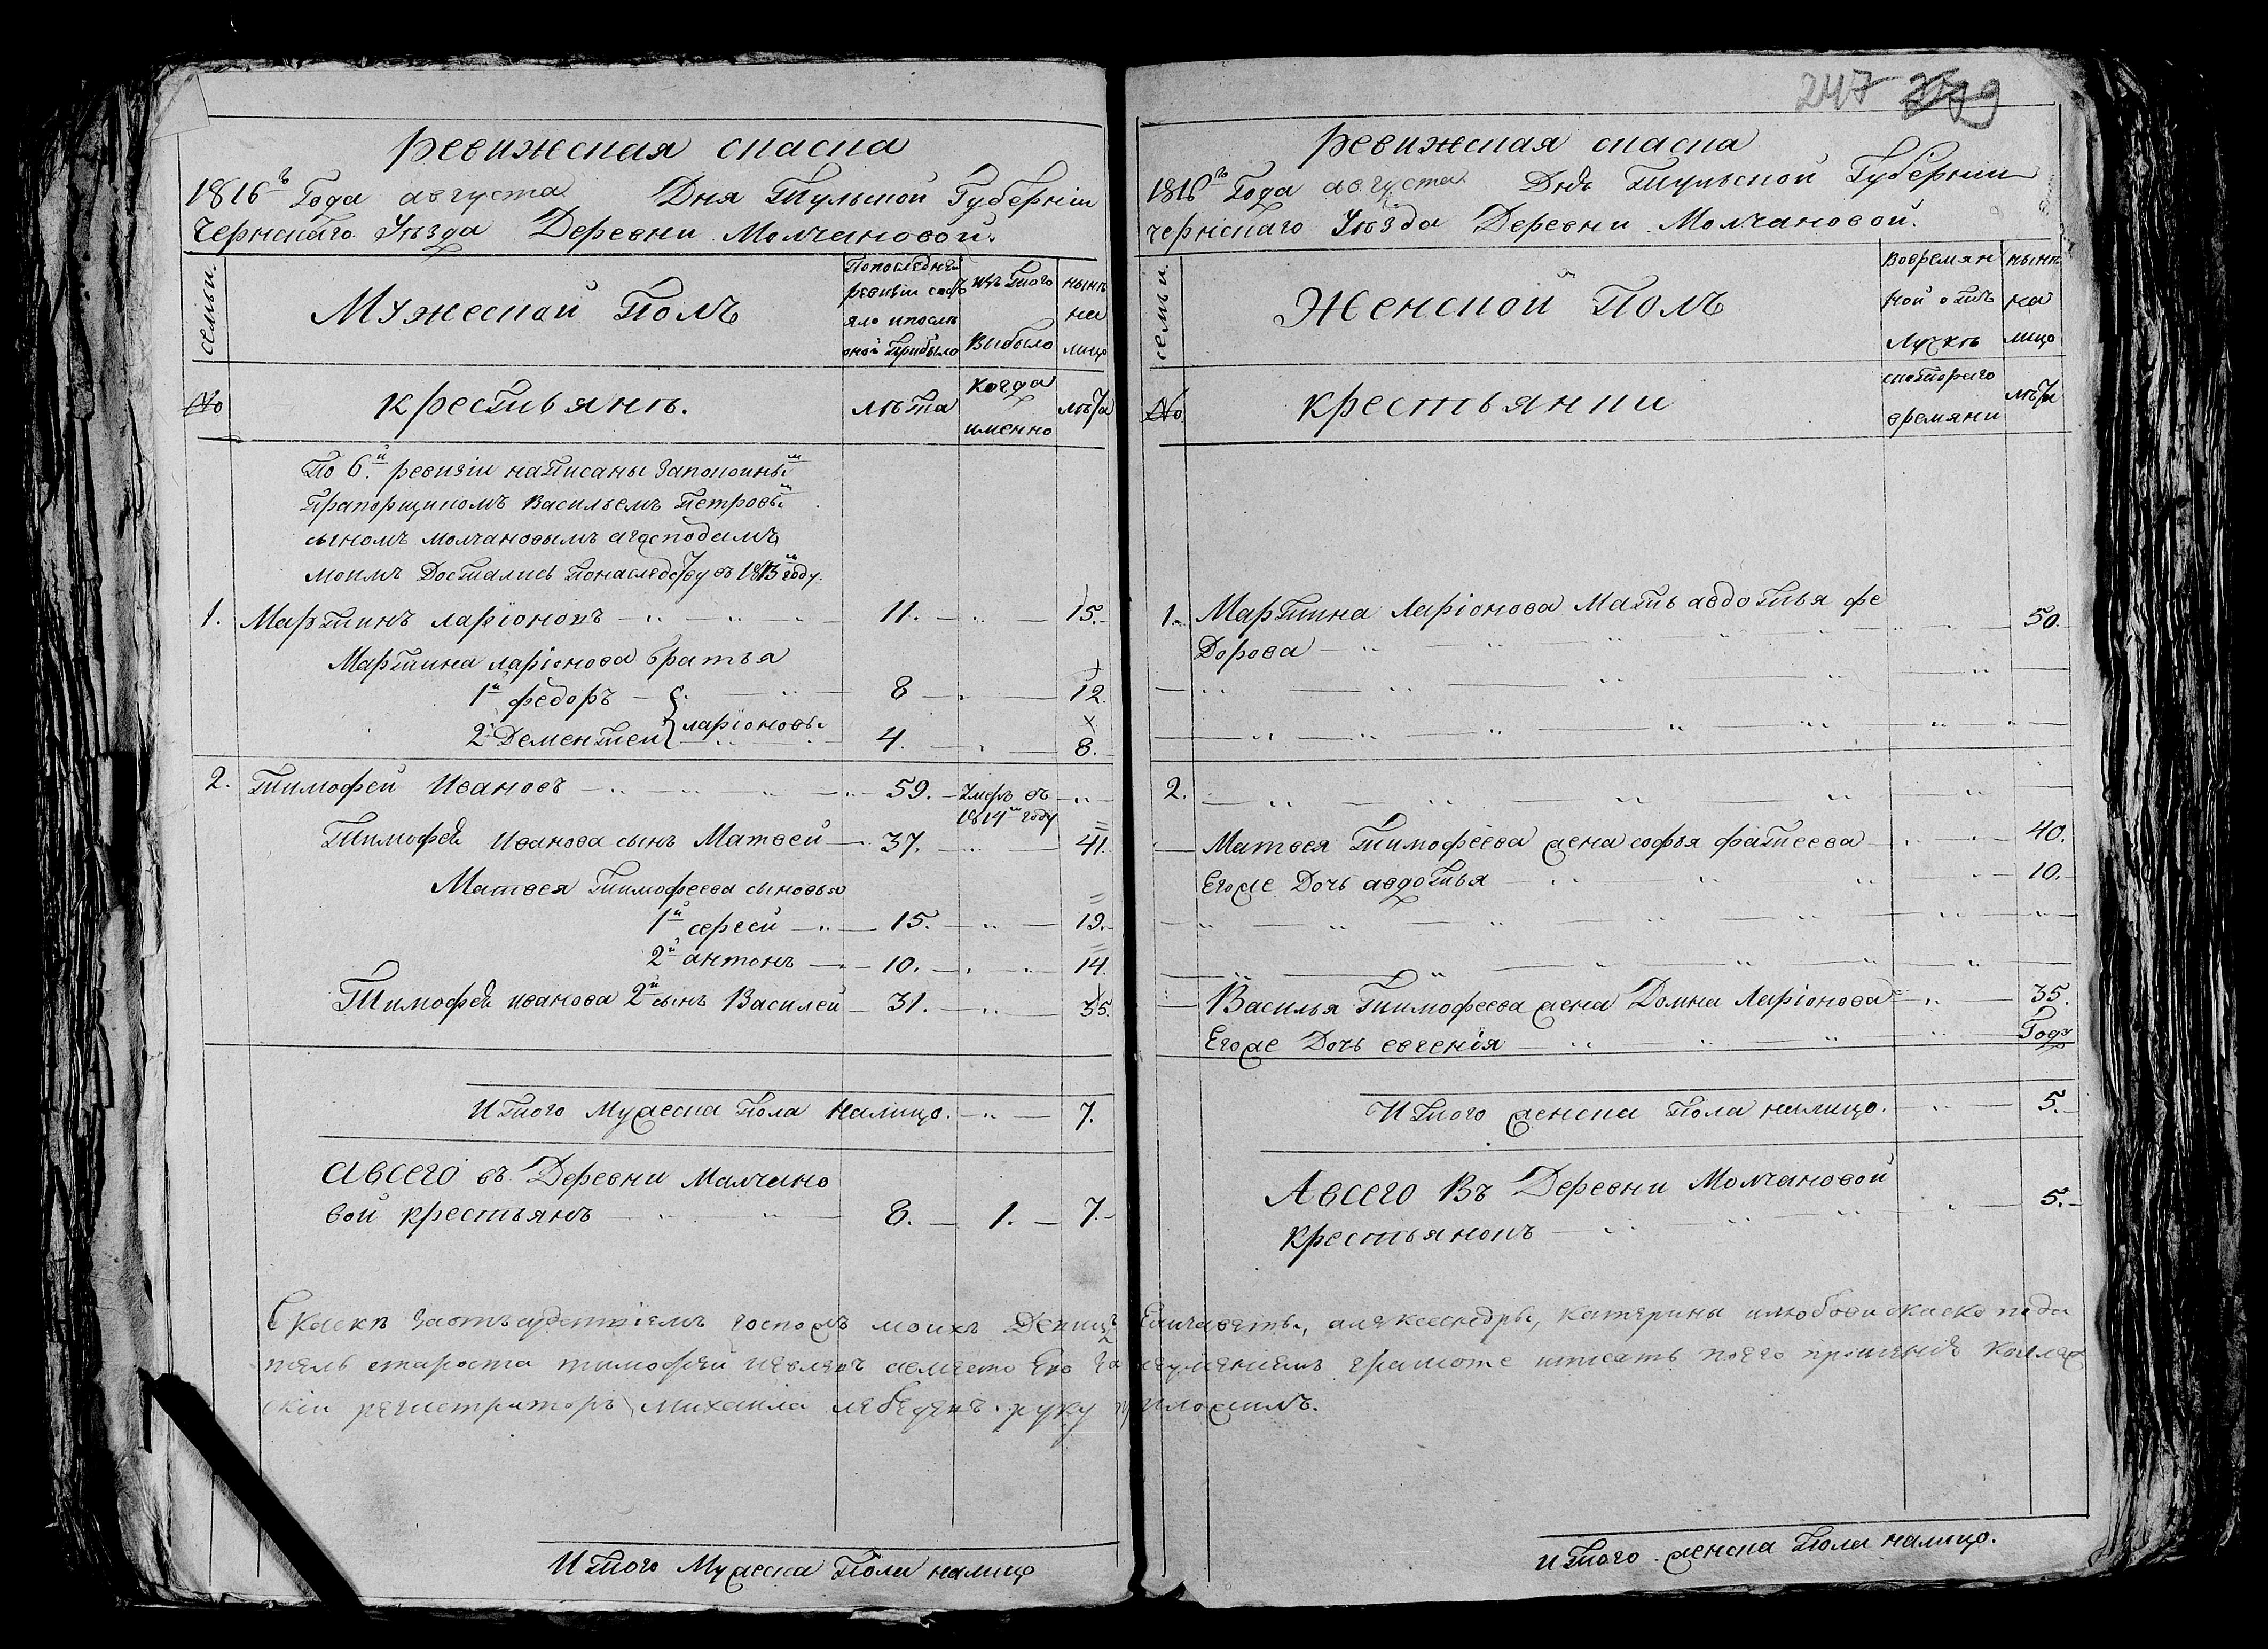 247
ревижская скаска
1816го Года августа Дня Тульской Губерніи
чернскаго Уезда Деревни Молчановой.
семьи.
Мужеской Полъ
Попоследней
ревизіи состо
яло ипосле
оной Прибыло
изъ Того
Выбыло
ныне
на
лицо
№
крестьянъ.
лета
когда
именно
лета
По 6й ревизіи наПисаны Запокоинымъ
Прапорщикомъ Васильемъ Петровымъ
сыномъ молчановымъ агосподамъ
моимъ Достались Понаследству въ 1813м году.
1. МарТинъ ларіоновъ 11. 15.
МарТина ларіонова братья
1й федоръ 8 12.
2й ДеменТеи ларіоновы 4. 8.
2. Тимофей Ивановъ 59. Умеръ въ
1814м году
Тимофея Иванова сынъ Матвей 37. 41.
Матвея Тимофеева сыновья
1й сергей 15. 19.
2й антонъ 10. 14.
Тимофея иванова 2й сынъ Василей 31. 35.
ИТого мужеска Пола налицо. 7.
авсего въ Деревни Малчано
вой крестьянъ 8. 1. 7.
ревижская скаска
1816го Года августа Дня Тульской Губерніи
чернскаго Уезда Деревни Молчановой.
семьи.
Женской Полъ
Вовремян
ной отъ
Лучке
ныне
на
лицо
№
крестьянки
скоТораго
времяни
лета
1. МарТина Ларіонова МаТь авдоТья фе
Дорова 50.
2.
Матвея Тимофеева жена софья фаТеева 40.
Егоже Дочь авдоТья 10.
Василья Тимофеева жена Домна Ларіонова 35.
Егоже Дочь евгенія Году
ИТого женска Пола налицо. 5.
Авсего Въ Деревни Молчановой
крестьянокъ 5.
Скаске господъ моихъ Девицъ Елизаветы, александры, катерины илюбови скаско пода
тель староста тимофей авместо Его За неуменіемъ грамоте иписать поего прошенію коллеж
скій регистраторъ михаила руку приложилъ.
ИТого Мужеска Пола налицо
иТого женска Пола налицо.